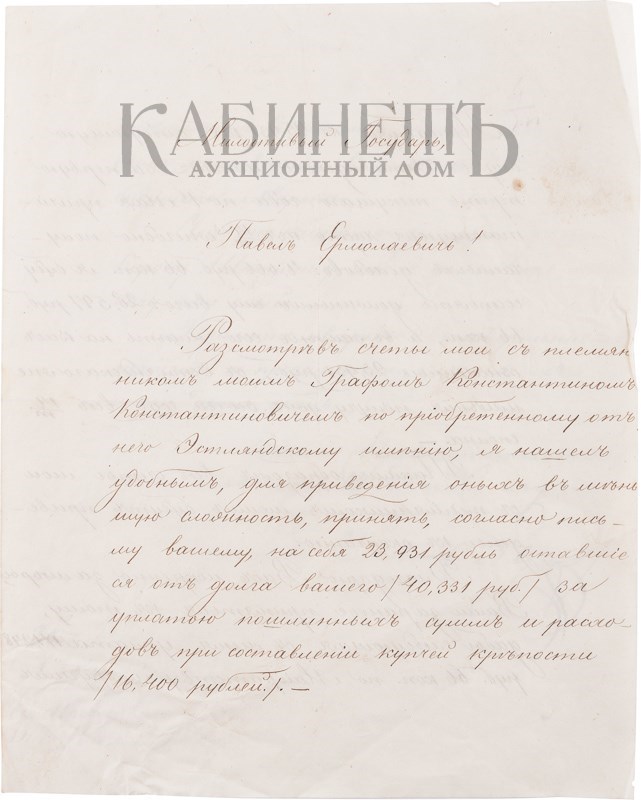 КАБИНЕТЪ
АУКЦИОННЫЙ ДОМ
Милостивый Государь,
Павелъ Ермолаевичъ!
Разсмотрѣвъ счеты мои съ племян-
никомъ моимъ Графомъ Константиномъ
Константиновичемъ по пріобретенному отъ
него Эстляндскому имѣнію, я нашелъ
удобнымъ, для приведенія оныхъ въ мень
шую сложность, принять, согласно пись-
му вашему, на себя 23,931 рубль оставшіе
ся отъ долга вашего /40,331 руб./ за
уплатою пошлинныхъ суммъ и расхо-
довъ при составленіи купчей крѣпости
/16,400 рублей./. —